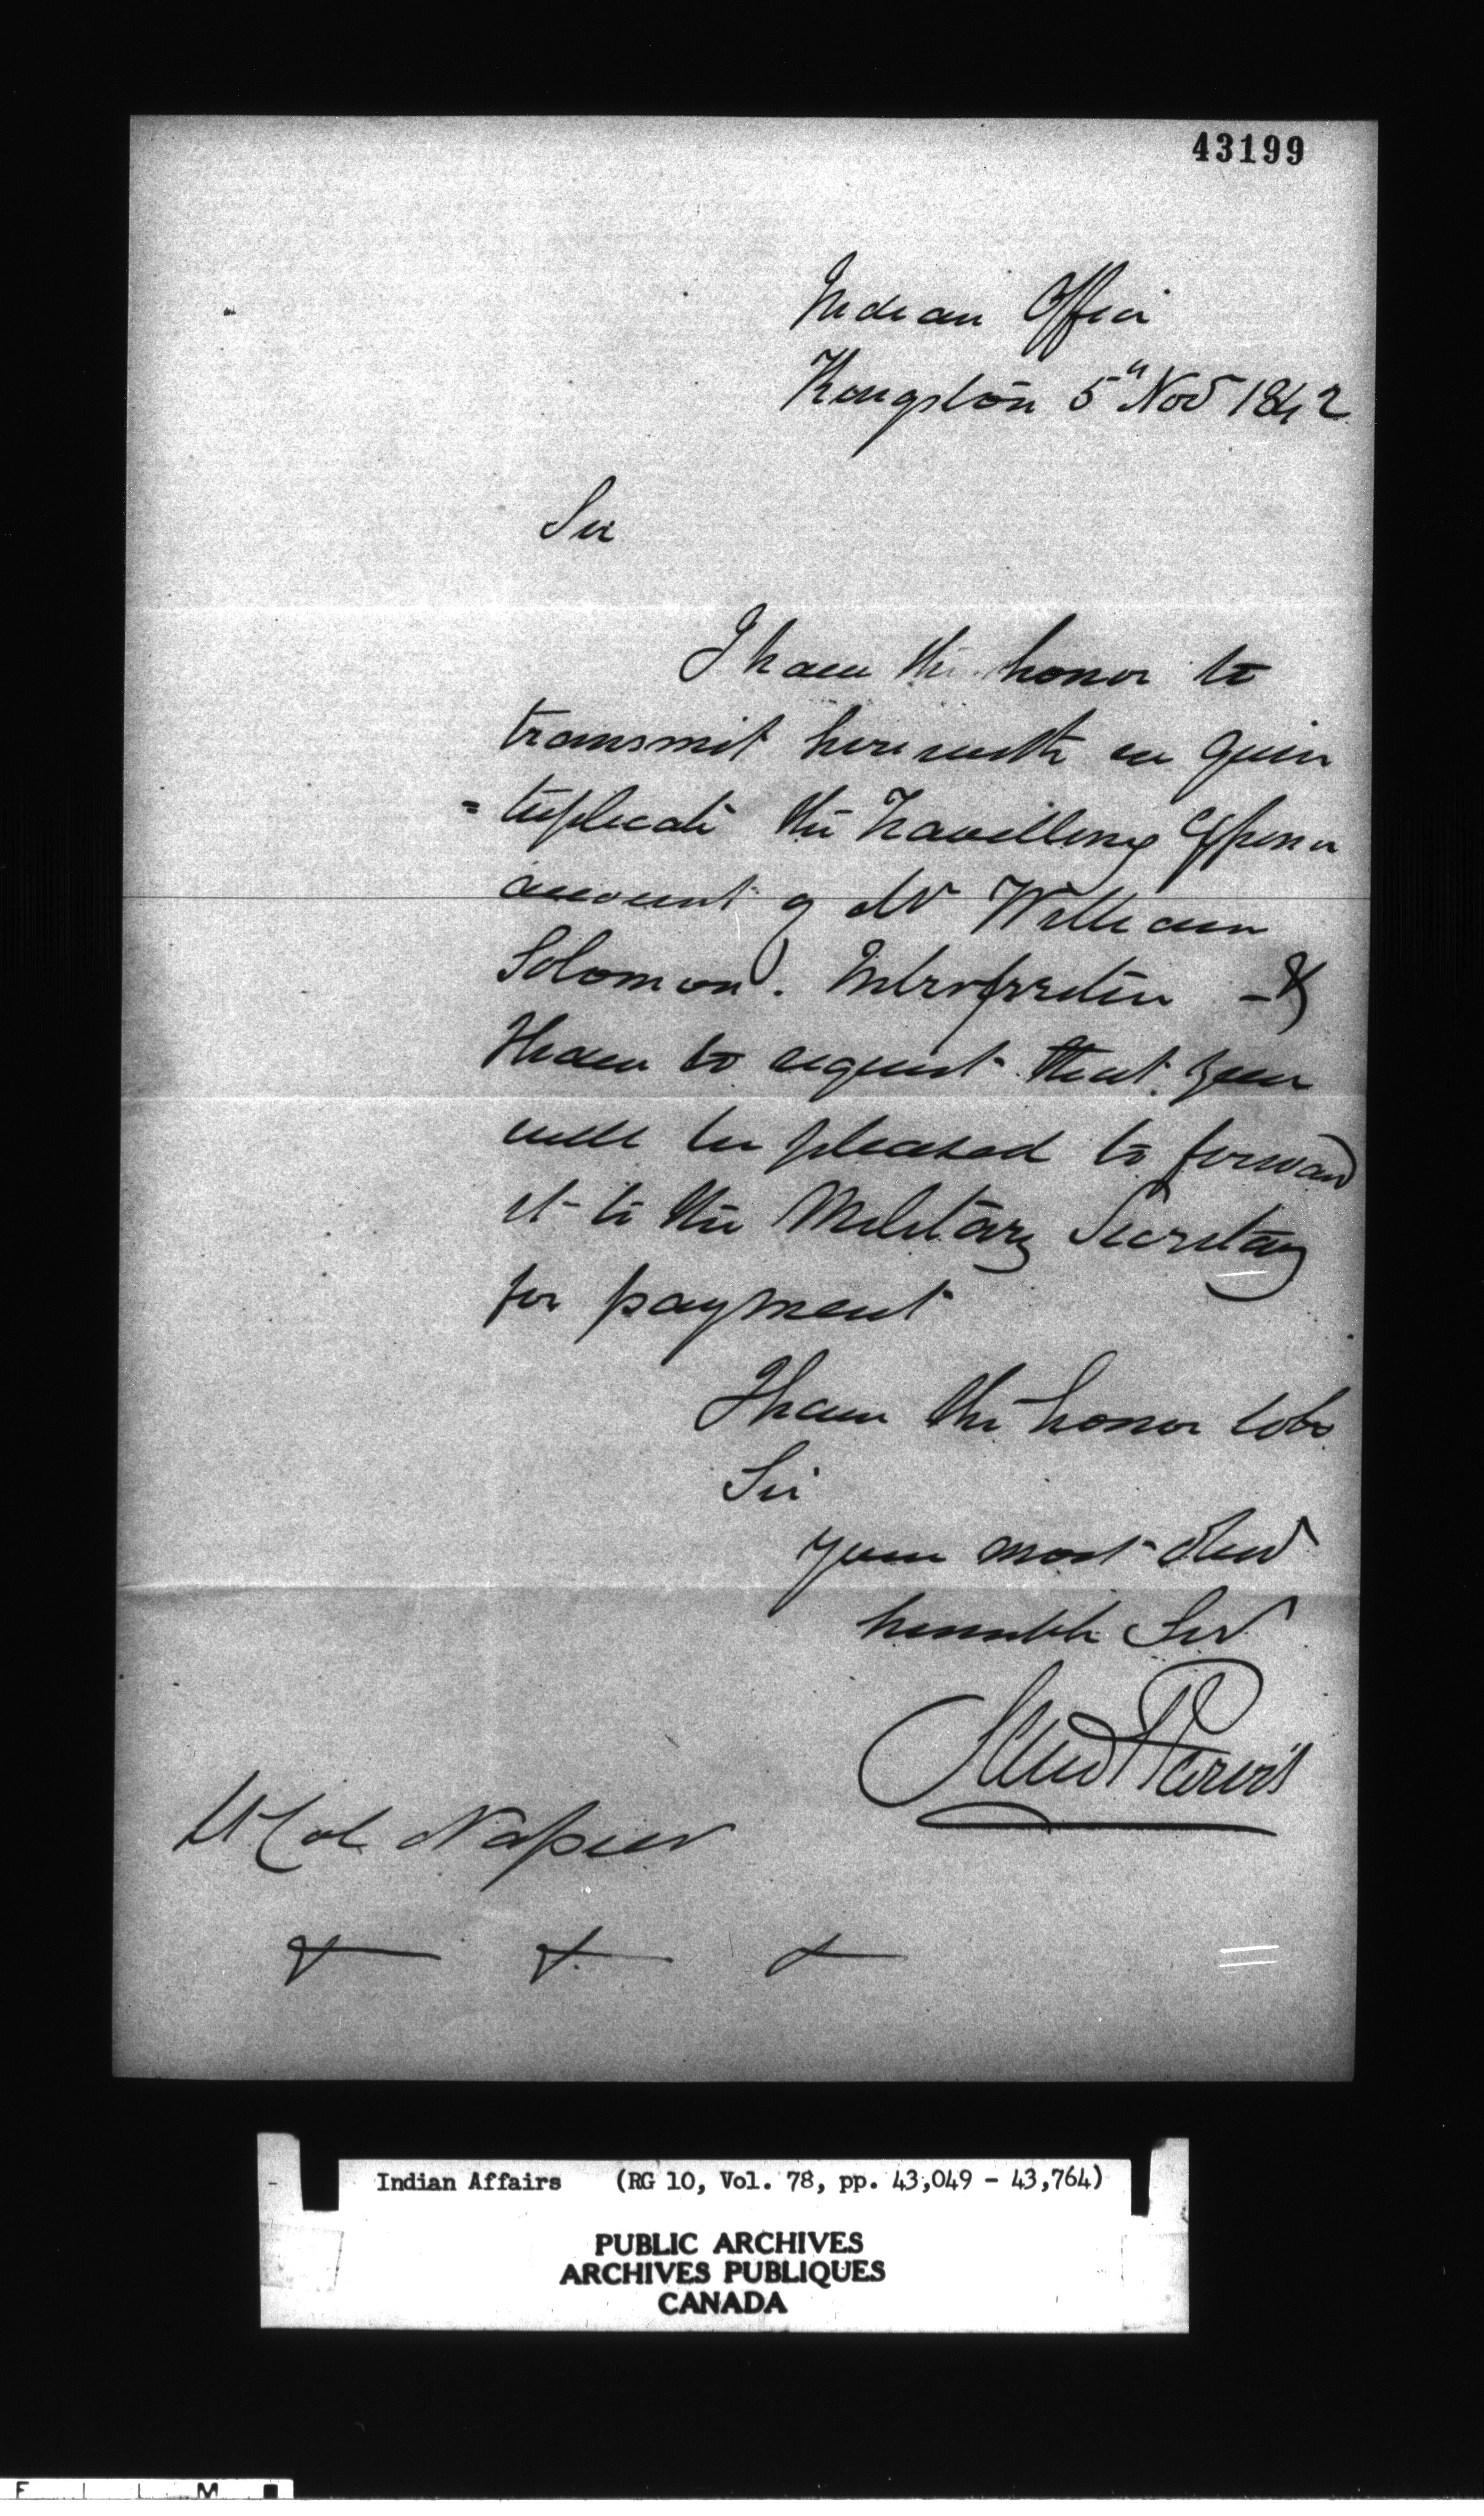 43199
Indian Office
Kingston 5" Nov 1842
Sir
I have the honor to
transmit herewith in quin
=tuplicate the Travelling Expense
account of Mr William
Solomon. Interpreter - &
I have to request that you
will be pleased to forward
it to the Military Secretary
for payment
I have the honor to be
Sir
your most Obed
humble Ser
Saml P Jarvis
Lt Col Napier
& & &
Indian Affairs (RG 10, Vol. 78, pp. 43,049 - 43,764)
PUBLIC ARCHIVES
ARCHIVES PUBLIQUES
CANADA
F I L M